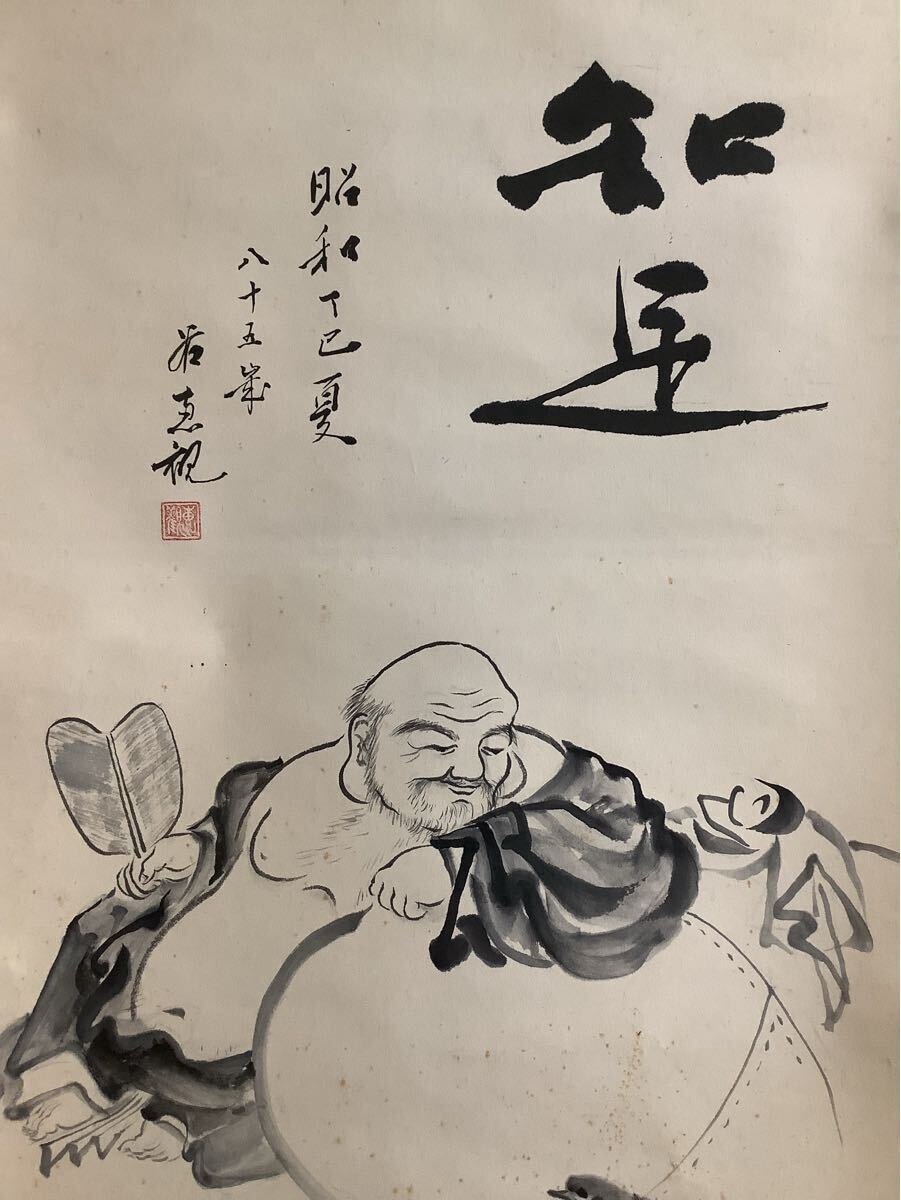 知足
昭和丁巳夏
八十五歳
恵観